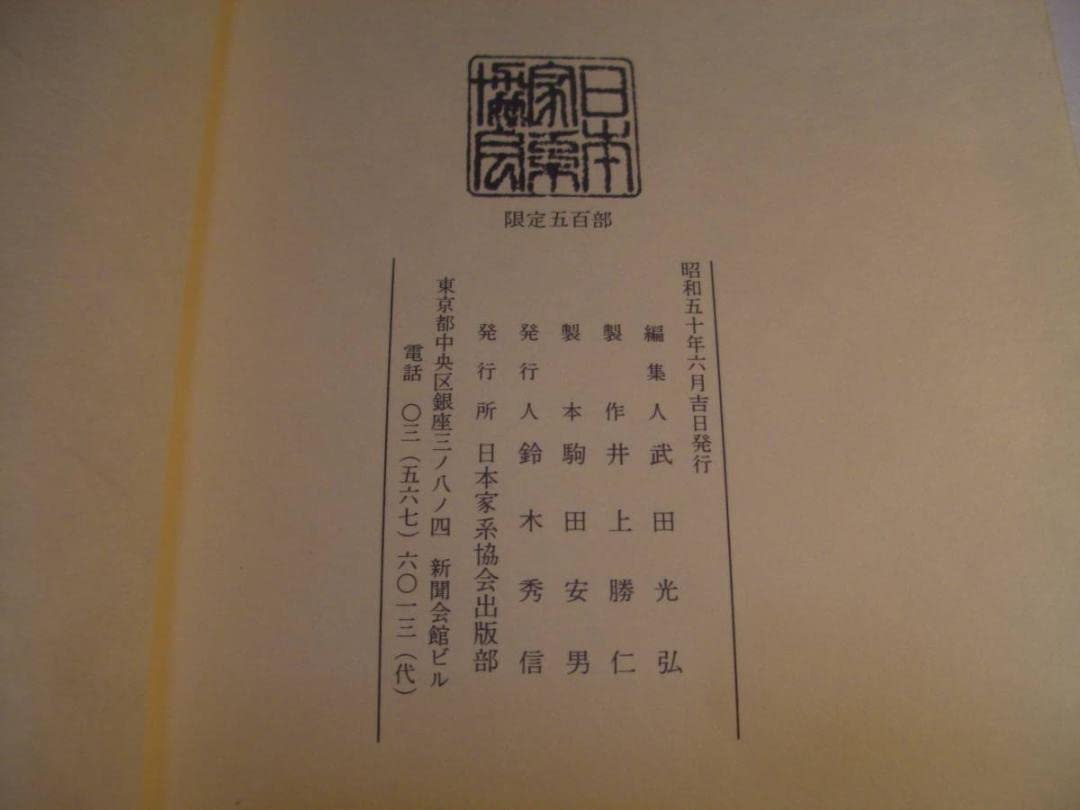 日本
家系
協会
限定五百部
昭和五十年六月吉日発行
編集人 武田光弘
製作 井上勝仁
製本 駒田安男
発行人 鈴木秀信
発行所 日本家系協会出版部
東京都中央区銀座三ノ八ノ四 新聞会館ビル
電話 〇三(五六七)六〇一三(代)